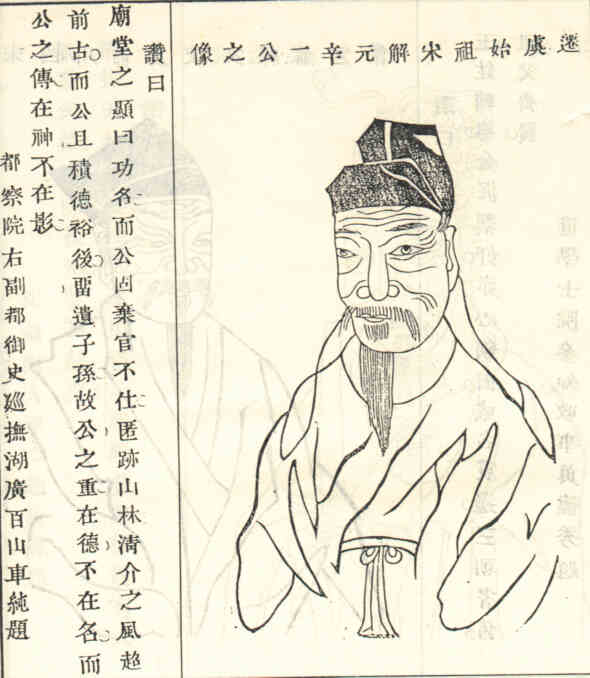 遷虞始祖宋解元辛一公之像
讚曰
廟堂之顯曰功名而公固棄官不仕匿跡山林清介之風超
前古而公且積德裕後畱遺子孫故公之重在德不在名而
公之傳在神不在影
都察院右副都御史廵撫湖廣百山車純題